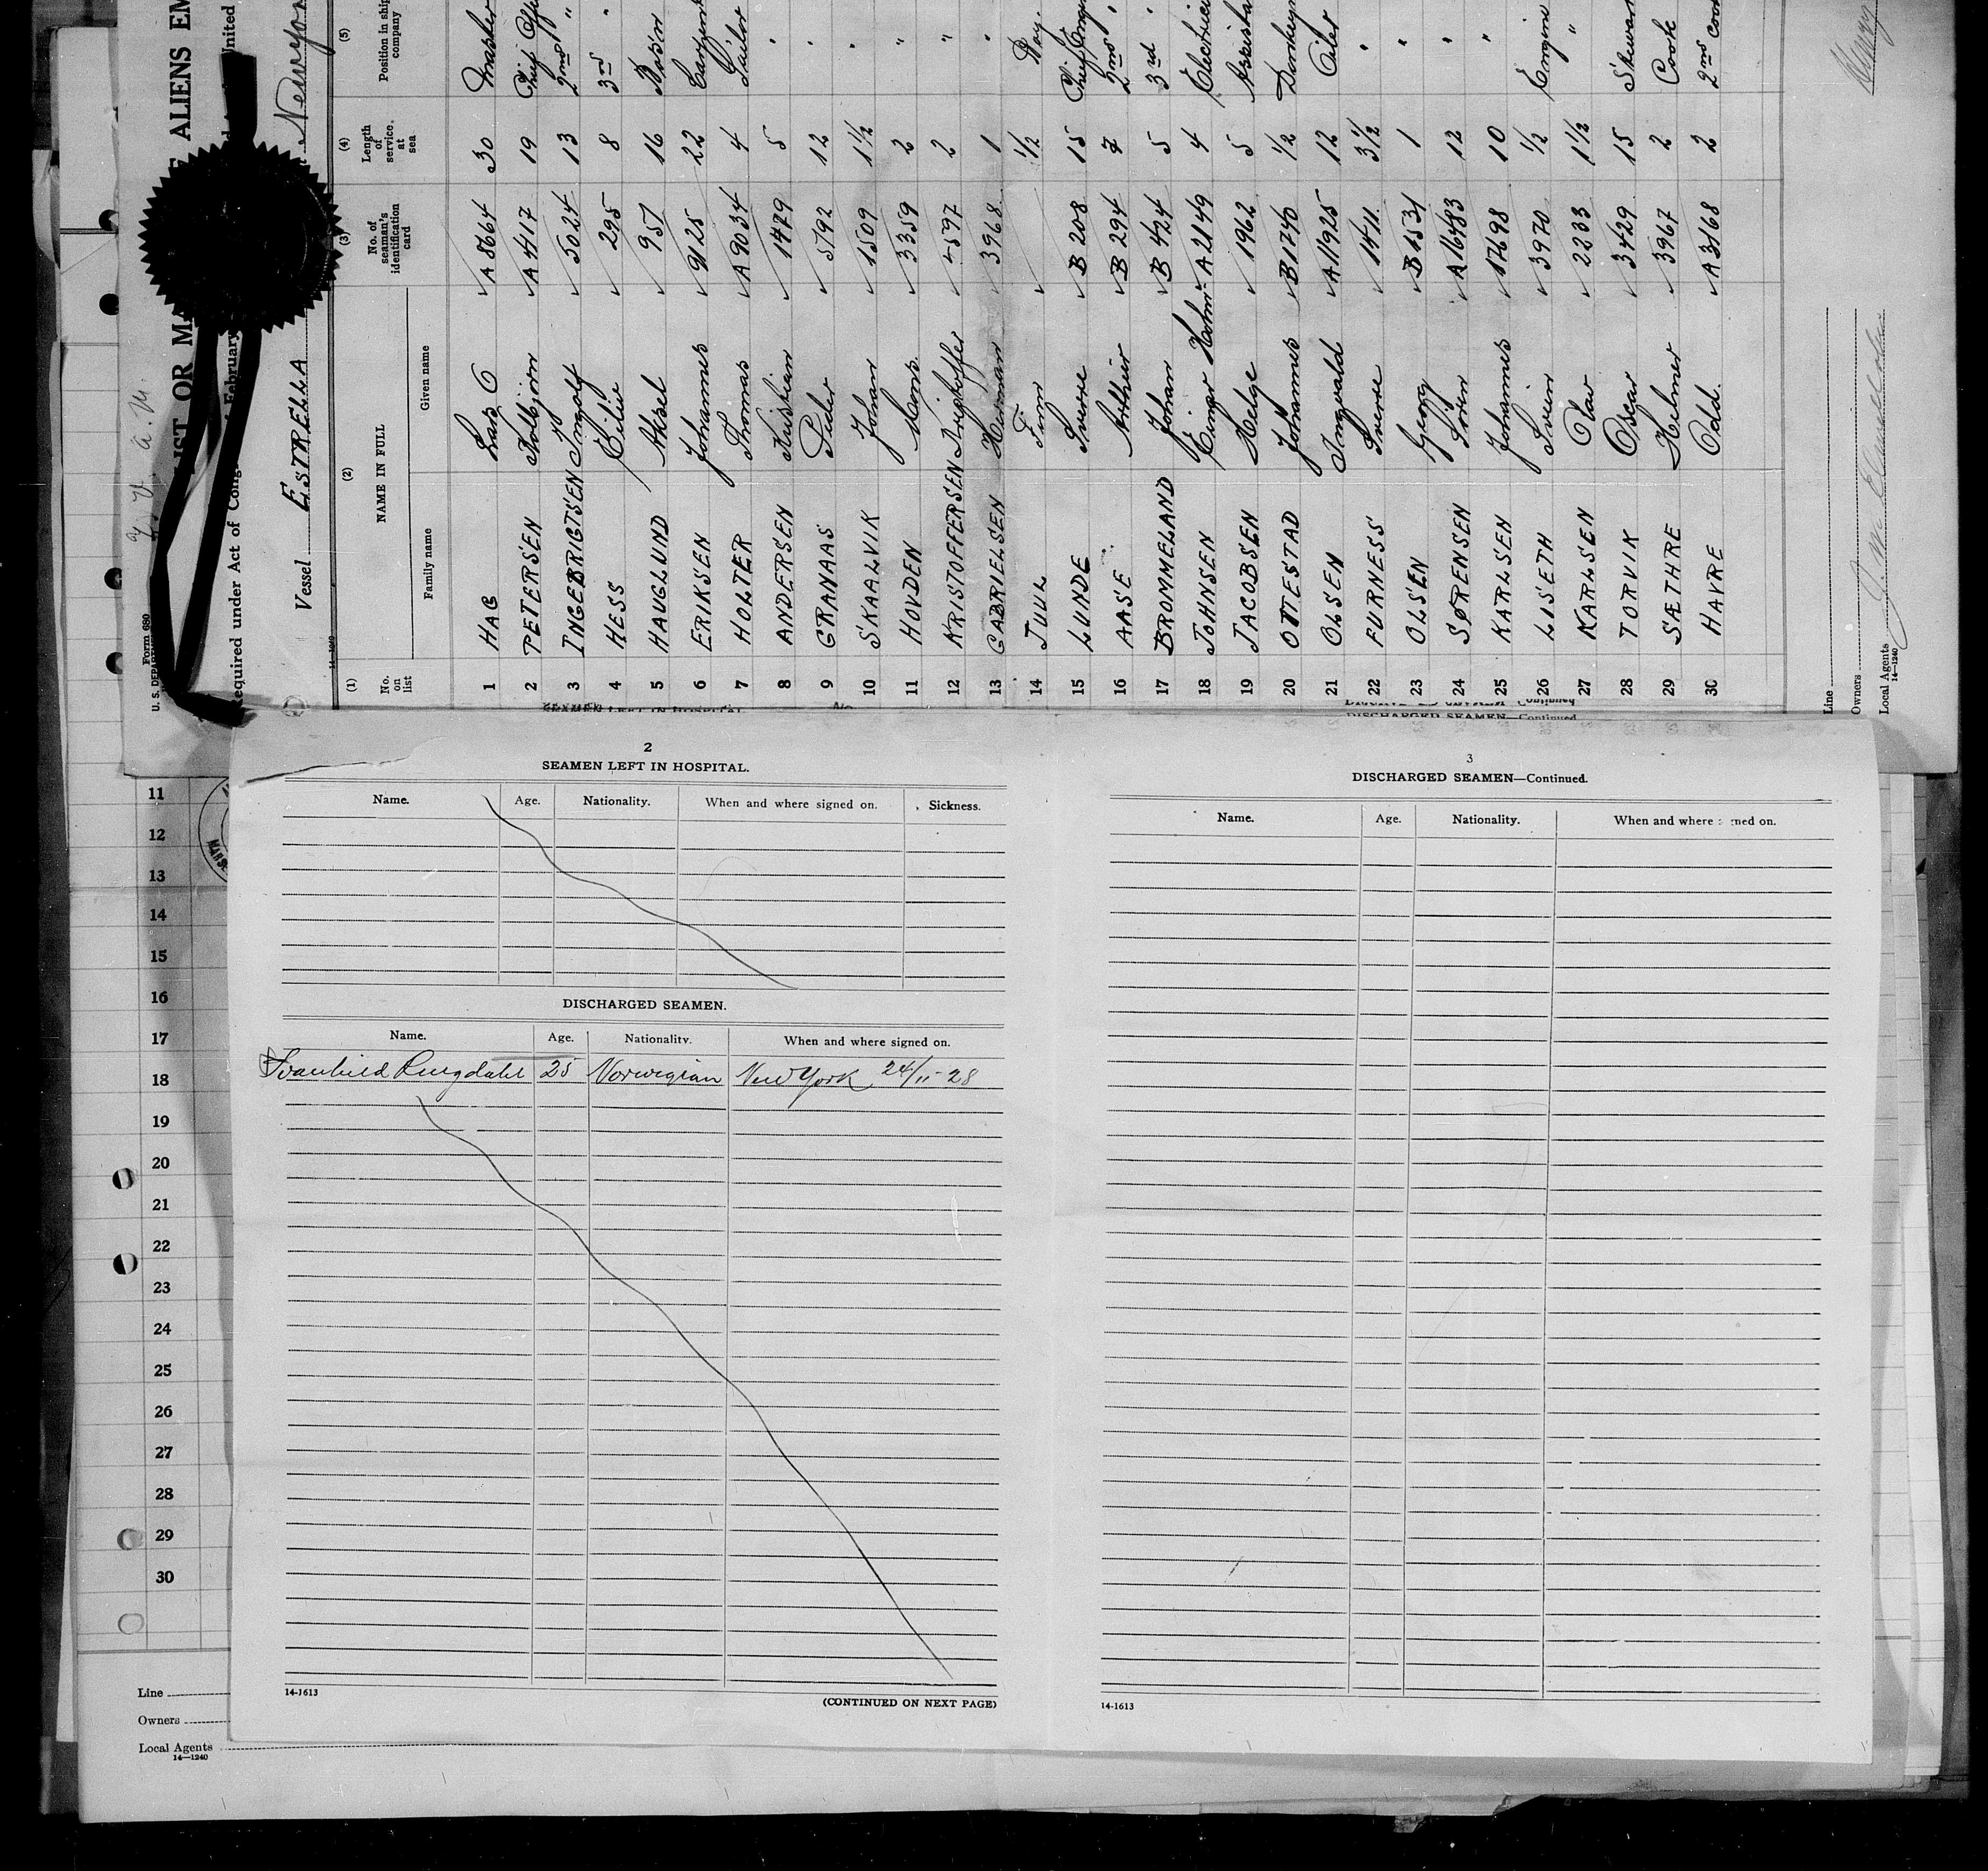 Form 680
U. S. DEPAR
ALIENS EM
Required under Act of Cong February
United
Vessel ESTRELLA
New York
(1) (2) (3) (4) (5)
No. on list
NAME IN FULL
Family name Given name
No. of seaman's identification card
Length of service at sea
Position in ship company
1 HAG Lars O A8664 30 Master
2 PETERSEN Torbjörn A4417 19 Chief Offi
3 INGEBRIGTSEN Ingolf 5024 13 2nd "
4 HESS Eiliv 295 8 3rd "
5 HAUGLUND Aksel 957 16 Bosun
6 ERIKSEN Johannes 9125 22 Carpent
7 HOLTER Thomas A9034 4 Sailor
8 ANDERSEN Kristian 1479 5 "
9 GRANAAS Peder 5792 12 "
10 SKAALVIK Johan 1509 1½ "
11 HOVDEN Hans 3359 2 "
12 KRISTOFFERSEN Kristoffer 4597 2 "
13 GABRIELSEN Herman 3968 1 "
14 JUUL Finn ½ Boy
15 LUNDE Sverre B208 15 Chief Engi
16 AASE Arthur B294 7 2nd "
17 BROMMELAND Johan B424 5 3rd "
18 JOHNSEN Einar Holm A2149 4 Electrici
19 JACOBSEN Helge 1962 5 Assista
20 OTTESTAD Johannes B1740 ½ Donkeym
21 OLSEN Ingvald A11925 12 Oiler
22 FURNESS Sverre 1411 3½ "
23 OLSEN Georg B1531 1 "
24 SØRENSEN Sören A16483 12 "
25 KARLSEN Johannes 17698 10 "
26 LISETH Svein 3970 ½ Engine
27 KARLSEN Olav 2233 1½ "
28 TORVIK Oscar 3429 15 Stewar
29 SÆTHRE Helmer 3967 2 Cook
30 HAVRE Odd. A3168 2 2nd Cook
Line
Owners
Local Agents
14—1240
2
SEAMEN LEFT IN HOSPITAL.
Name. Age. Nationality. When and where signed on. Sickness.
DISCHARGED SEAMEN.
Name. Age. Nationality. When and where signed on.
Svanhild Ringdahl 25 Norwegian New York 24/11-28
14-1613
(CONTINUED ON NEXT PAGE)
3
DISCHARGED SEAMEN—Continued.
Name. Age. Nationality. When and where signed on.
14-1613
11
12
13
14
15
16
17
18
19
20
21
22
23
24
25
26
27
28
29
30
Line
Owners
Local Agents
14—1240